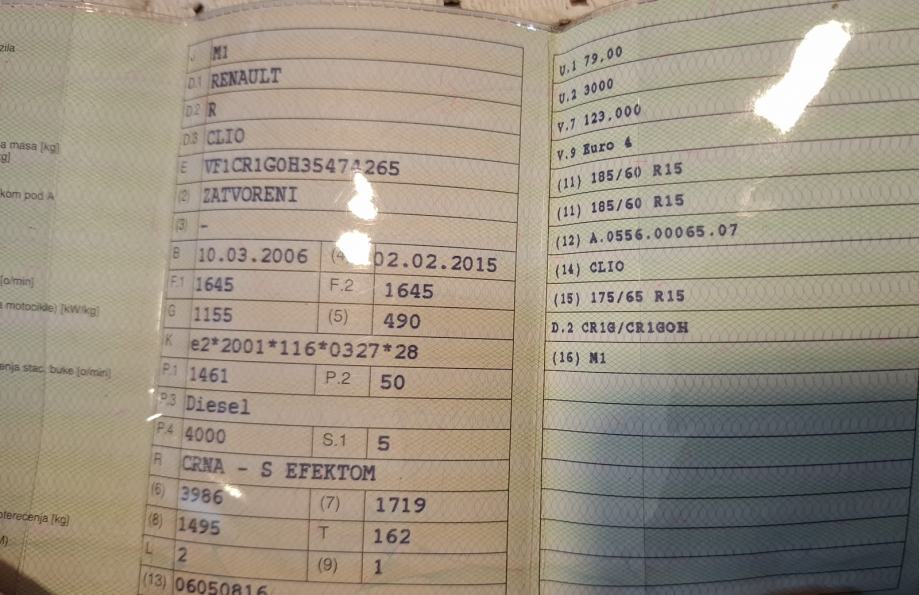 zila
a masa [kg]
kg]
kom pod A
[o/min]
a motocikle) [kW/kg]
enja stac. buke [o/min]
pterećenja [kg]
M)
J M1
D.1 RENAULT
D.2 R
D.3 CLIO
E VF1CR1G0H35474265
(2) ZATVORENI
(3) -
B 10.03.2006 (4) 02.02.2015
F.1 1645 F.2 1645
G 1155 (5) 490
K e2*2001*116*0327*28
P.1 1461 P.2 50
P.3 Diesel
P.4 4000 S.1 5
R CRNA - S EFEKTOM
(6) 3986 (7) 1719
(8) 1495 T 162
L 2 (9) 1
(13) 06050816
U.1 79,00
U.2 3000
V.7 123,000
V.9 Euro 4
(11) 185/60 R15
(11) 185/60 R15
(12) A.0556.00065.07
(14) CLIO
(15) 175/65 R15
D.2 CR1G/CR1G0H
(16) M1